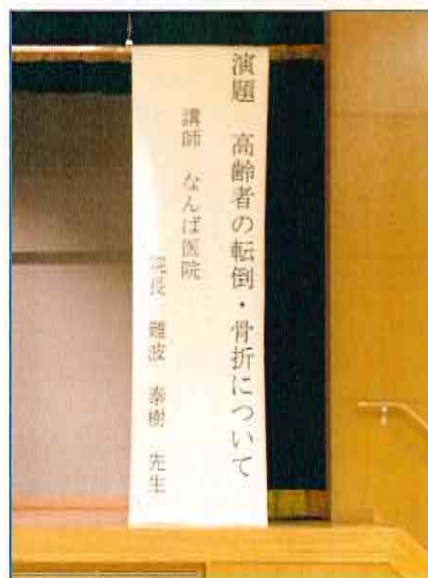 演題　高齢者の転倒・骨折について
講師　なんば医院
院長　難波　泰樹　先生